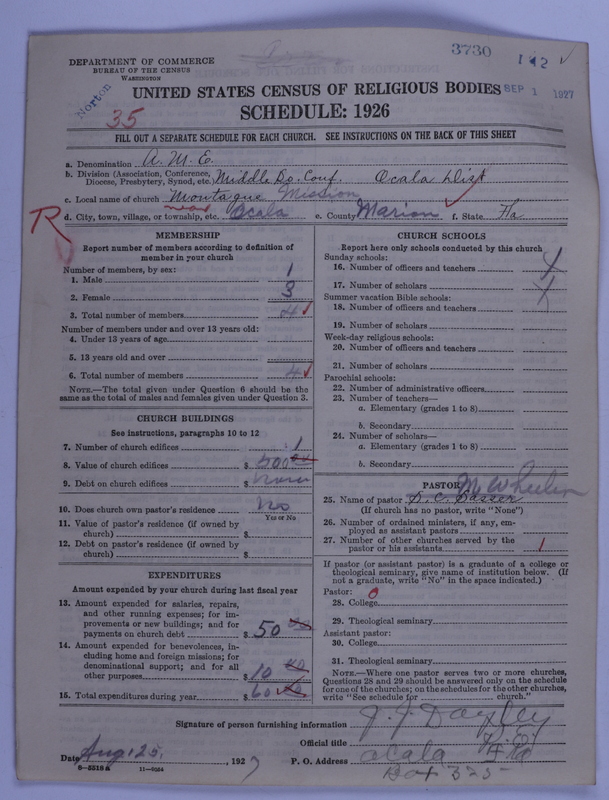 3730
142
DEPARTMENT OF COMMERCE
BUREAU OF THE CENSUS
WASHINGTON
Norton
UNITED STATES CENSUS OF RELIGIOUS BODIES
SEP 1 1927
35
SCHEDULE: 1926
FILL OUT A SEPARATE SCHEDULE FOR EACH CHURCH. SEE INSTRUCTIONS ON THE BACK OF THIS SHEET
a. Denomination A. M. E.
b. Division (Association, Conference, Diocese, Presbytery, Synod, etc. Middle Conf. Ocala Dist
c. Local name of church Montague Mission
d. City, town, village, or township, etc. near Ocala e. County Marion f. State Fla
R
MEMBERSHIP
Report number of members according to definition of
member in your church
Number of members, by sex:
1. Male 1
2. Female 3
3. Total number of members 4
Number of members under and over 13 years old:
4. Under 13 years of age
5. 13 years old and over
6. Total number of members 4
NOTE.—The total given under Question 6 should be the
same as the total of males and females given under Question 3.
CHURCH BUILDINGS
See instructions, paragraphs 10 to 12
7. Number of church edifices 1
8. Value of church edifices $ 500 00
9. Debt on church edifices $ None
10. Does church own pastor's residence No
Yes or No
11. Value of pastor's residence (if owned by
church) $
12. Debt on pastor's residence (if owned by
church) $
EXPENDITURES
Amount expended by your church during last fiscal year
13. Amount expended for salaries, repairs,
and other running expenses; for im-
provements or new buildings; and for
payments on church debt $ 50 00
14. Amount expended for benevolences, in-
cluding home and foreign missions; for
denominational support; and for all
other purposes $ 10 00
15. Total expenditures during year $ 60 00
CHURCH SCHOOLS
Report here only schools conducted by this church
Sunday schools:
16. Number of officers and teachers
17. Number of scholars
Summer vacation Bible schools:
18. Number of officers and teachers
19. Number of scholars
Week-day religious schools:
20. Number of officers and teachers
21. Number of scholars
Parochial schools:
22. Number of administrative officers
23. Number of teachers—
a. Elementary (grades 1 to 8)
b. Secondary
24. Number of scholars—
a. Elementary (grades 1 to 8)
b. Secondary
PASTOR
25. Name of pastor
(If church has no pastor, write "None")
26. Number of ordained ministers, if any, em-
ployed as assistant pastors
27. Number of other churches served by the
pastor or his assistants 1
If pastor (or assistant pastor) is a graduate of a college or
theological seminary, give name of institution below. (If
not a graduate, write "No" in the space indicated.)
Pastor: 0
28. College
29. Theological seminary
Assistant pastor:
30. College
31. Theological seminary
NOTE.—Where one pastor serves two or more churches,
Questions 28 and 29 should be answered only on the schedule
for one of the churches; on the schedules for the other churches,
write "See schedule for church."
Signature of person furnishing information
Official title P. E.
Date Aug 25, 1927 P. O. Address Ocala Fla
8—5518 a 11—9264 Box 325